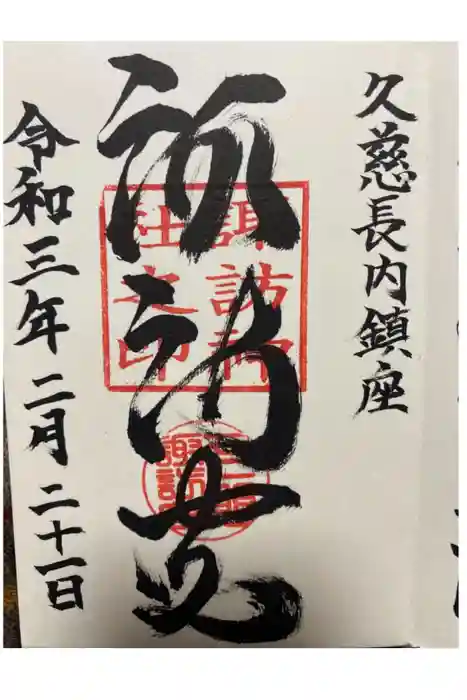 久慈長内鎮座
諏訪宮
諏訪神
社之印
令和三年二月二十一日